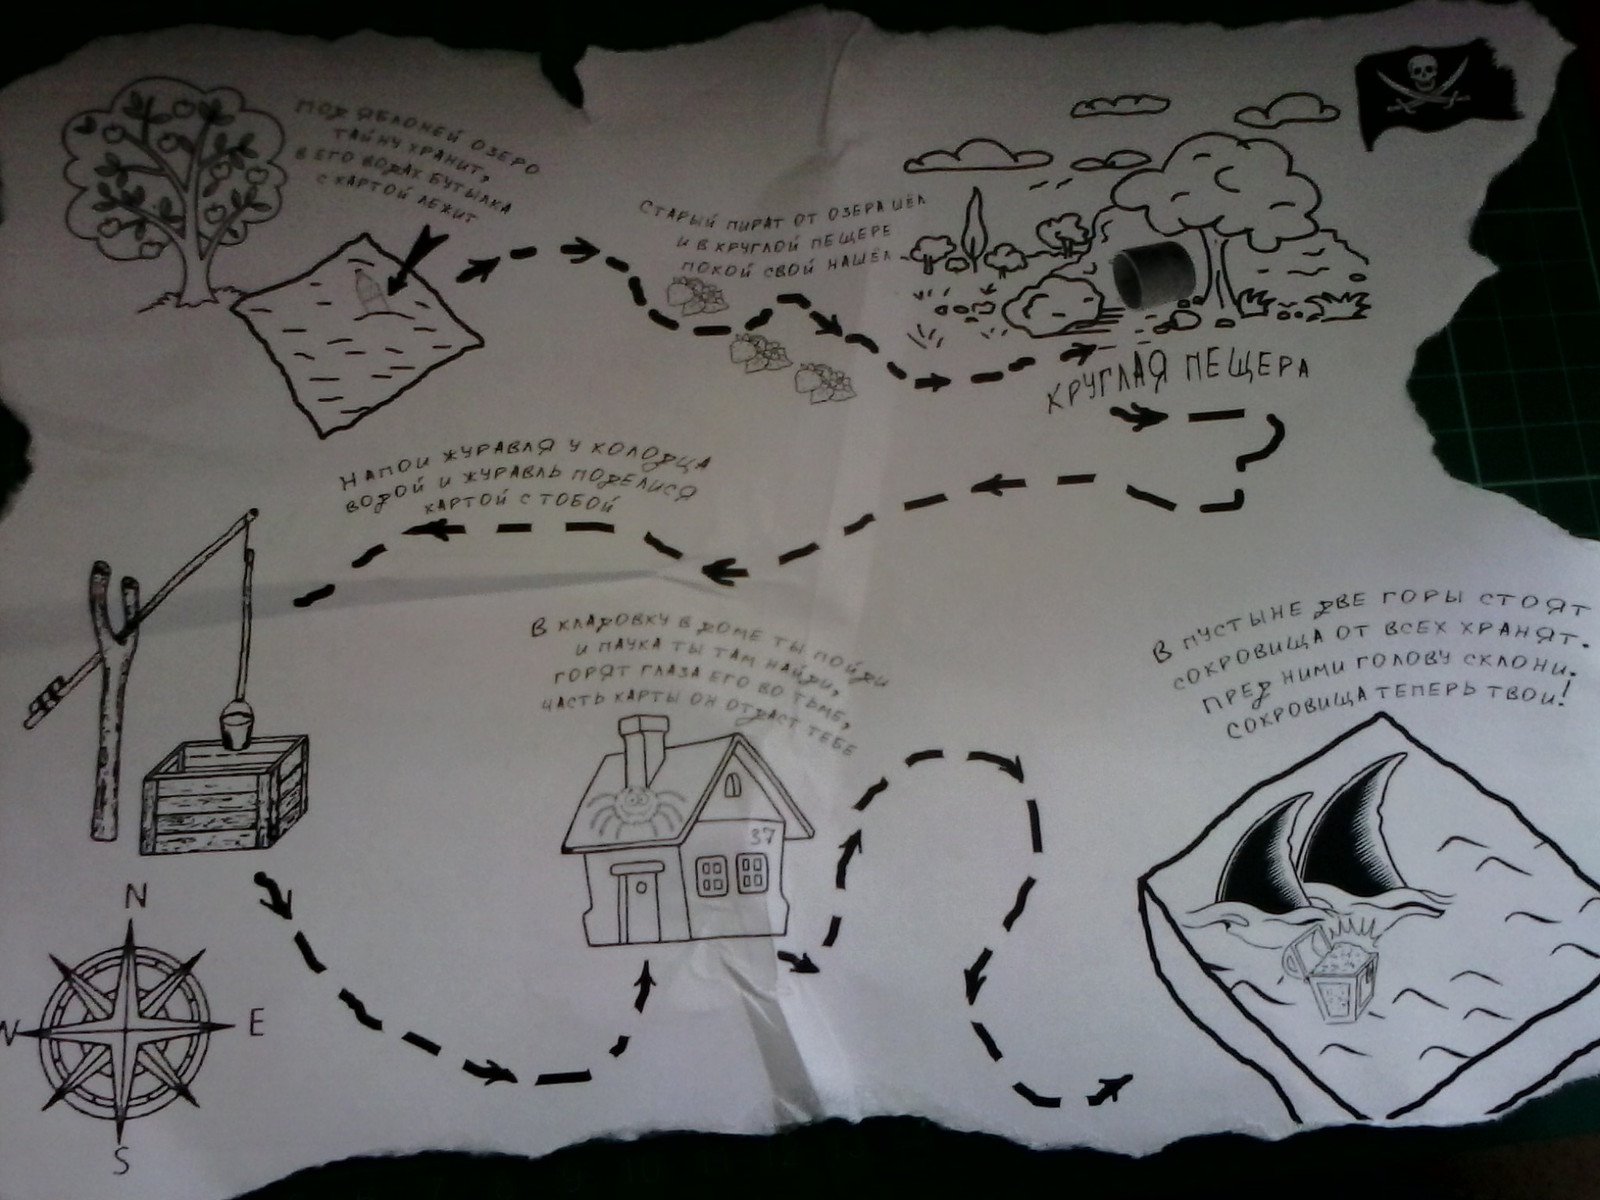 ПОД ЯБЛОНЕЙ ОЗЕРО
ТАЙНУ ХРАНИТ,
В ЕГО ВОДАХ БУТЫЛКА
С КАРТОЙ ЛЕЖИТ
СТАРЫЙ ПИРАТ ОТ ОЗЕРА ШЁЛ
И В КРУГЛОЙ ПЕЩЕРЕ
ПОКОЙ СВОЙ НАШЁЛ
КРУГЛАЯ ПЕЩЕРА
НАПОИ ЖУРАВЛЯ У КОЛОДЦА
ВОДОЙ И ЖУРАВЛЬ ПОДЕЛИСЯ
КАРТОЙ С ТОБОЙ
В КЛАДОВКУ В ДОМЕ ТЫ ПОЙДИ
И ПАУКА ТЫ ТАМ НАЙДИ,
ГОРЯТ ГЛАЗА ЕГО ВО ТЬМЕ,
ЧАСТЬ КАРТЫ ОН ОТДАСТ ТЕБЕ
37
В ПУСТЫНЕ ДВЕ ГОРЫ СТОЯТ
СОКРОВИЩА ОТ ВСЕХ ХРАНЯТ.
ПРЕД НИМИ ГОЛОВУ СКЛОНИ.
СОКРОВИЩА ТЕПЕРЬ ТВОИ!
N
W
E
S